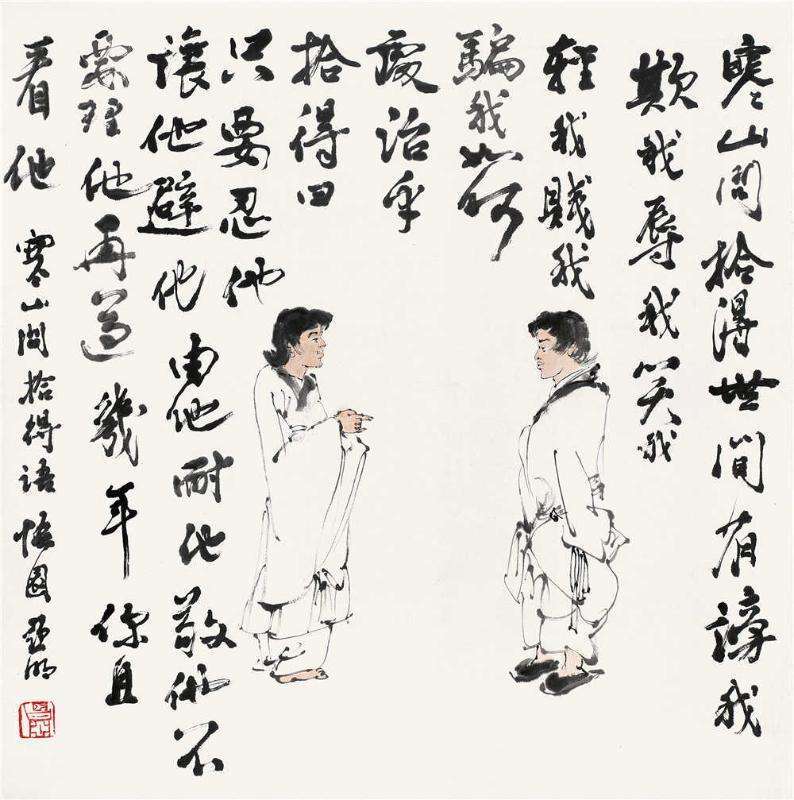 寒山問拾得世間有謗我
欺我辱我笑我
輕我賤我
騙我如何
處治乎
拾得曰
只要忍他
讓他避他由他耐他敬他不
要理他再過幾年你且
看他
寒山問拾得語 悟園 亞明